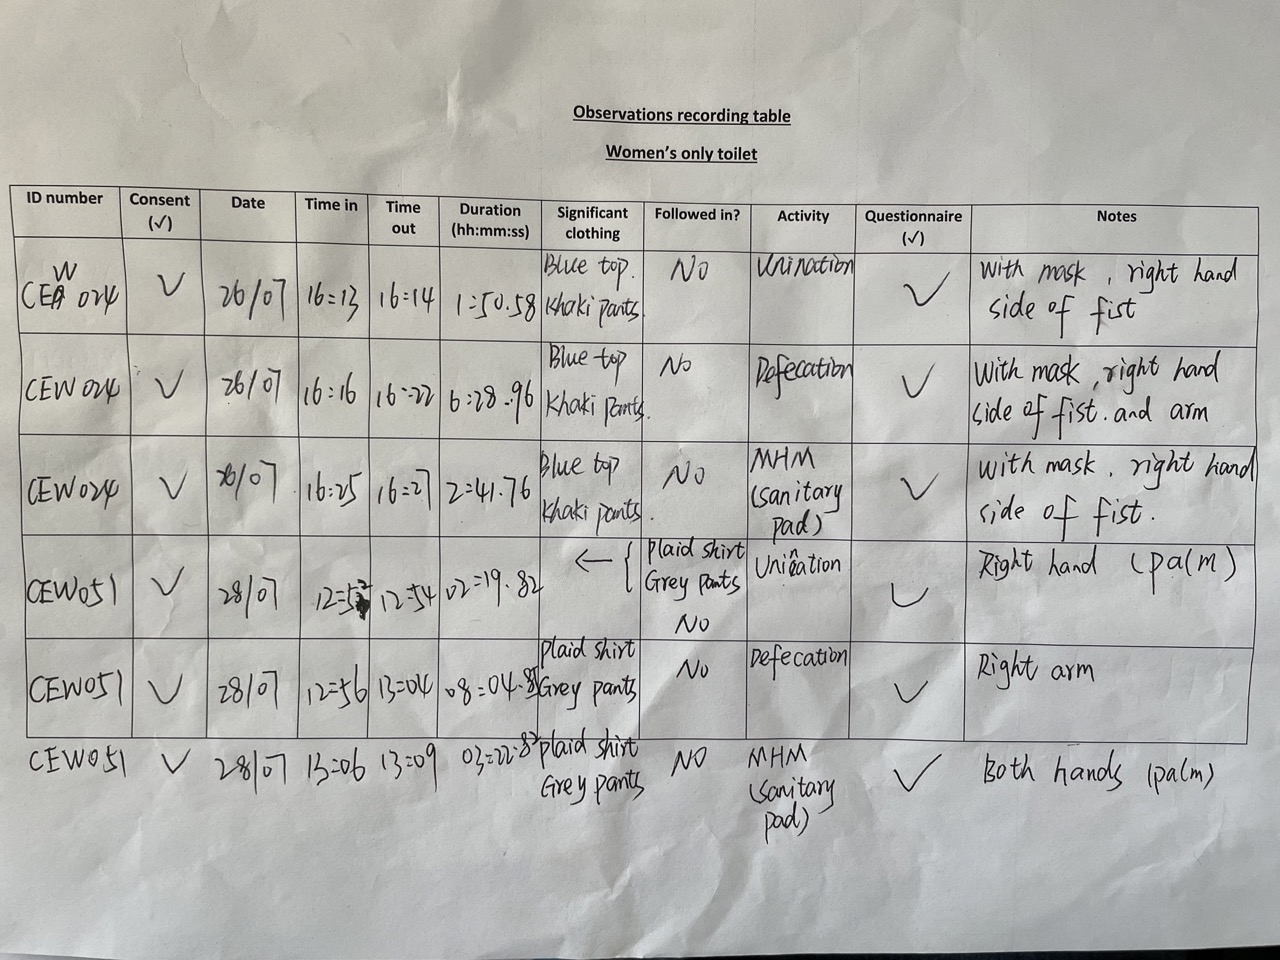 Observations recording table
Women's only toilet
ID number Consent (✓) Date Time in Time out Duration (hh:mm:ss) Significant clothing Followed in? Activity Questionnaire (✓) Notes
CEW 024 ✓ 26/07 16:13 16:14 1:50.58 Blue top. Khaki pants No Urination ✓ With mask, right hand side of fist
CEW024 ✓ 26/07 16:16 16:22 6:28.96 Blue top Khaki pants. No Defecation ✓ With mask, right hand side of fist. and arm
CEW024 ✓ 26/07 16:25 16:27 2:41.76 Blue top Khaki pants. No MHM (sanitary pad) ✓ With mask, right hand side of fist.
CEW051 ✓ 28/07 12:54 02:19.82 ← { Plaid shirt Grey pants No Urination ✓ Right hand (palm)
CEW051 ✓ 28/07 12:56 13:04 Plaid shirt Grey pants No Defecation ✓ Right arm
CEW051 ✓ 28/07 13:06 13:09 Plaid shirt Grey pants NO MHM (sanitary pad) ✓ Both hands (palm)